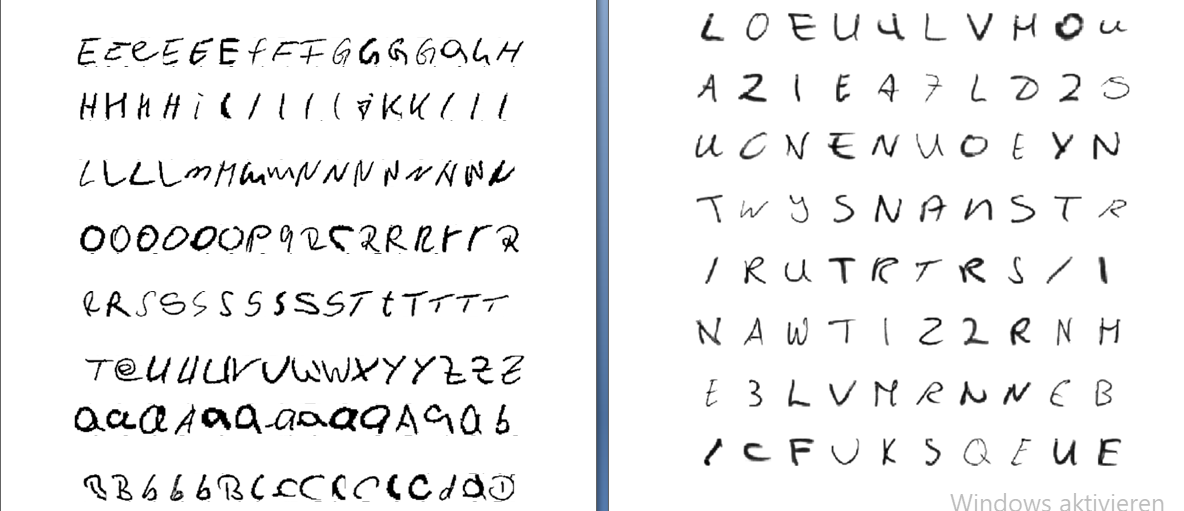 E E e E E E f F F G G G G a G H
H H h H i l / l l l j K K l l l
L L L L m M m m N N N N N N N N
O O O O O O O P q R r R R R r r R
R R S S S S S S S S T t T T T T
T @ U U U r U W W X Y Y Z Z Z
a a a A a a a a a a A a a b
B B b b b B C C C C C C C d a D
L O E U U L V M O u
A 2 1 E A 7 L D 2 S
U C N E N U O E Y N
T W Y S N A n S T R
/ R U T R T R S / 1
N A W T 1 2 2 R N M
E 3 L V M R N N E B
/ C F U K S Q E U E
Windows aktivieren